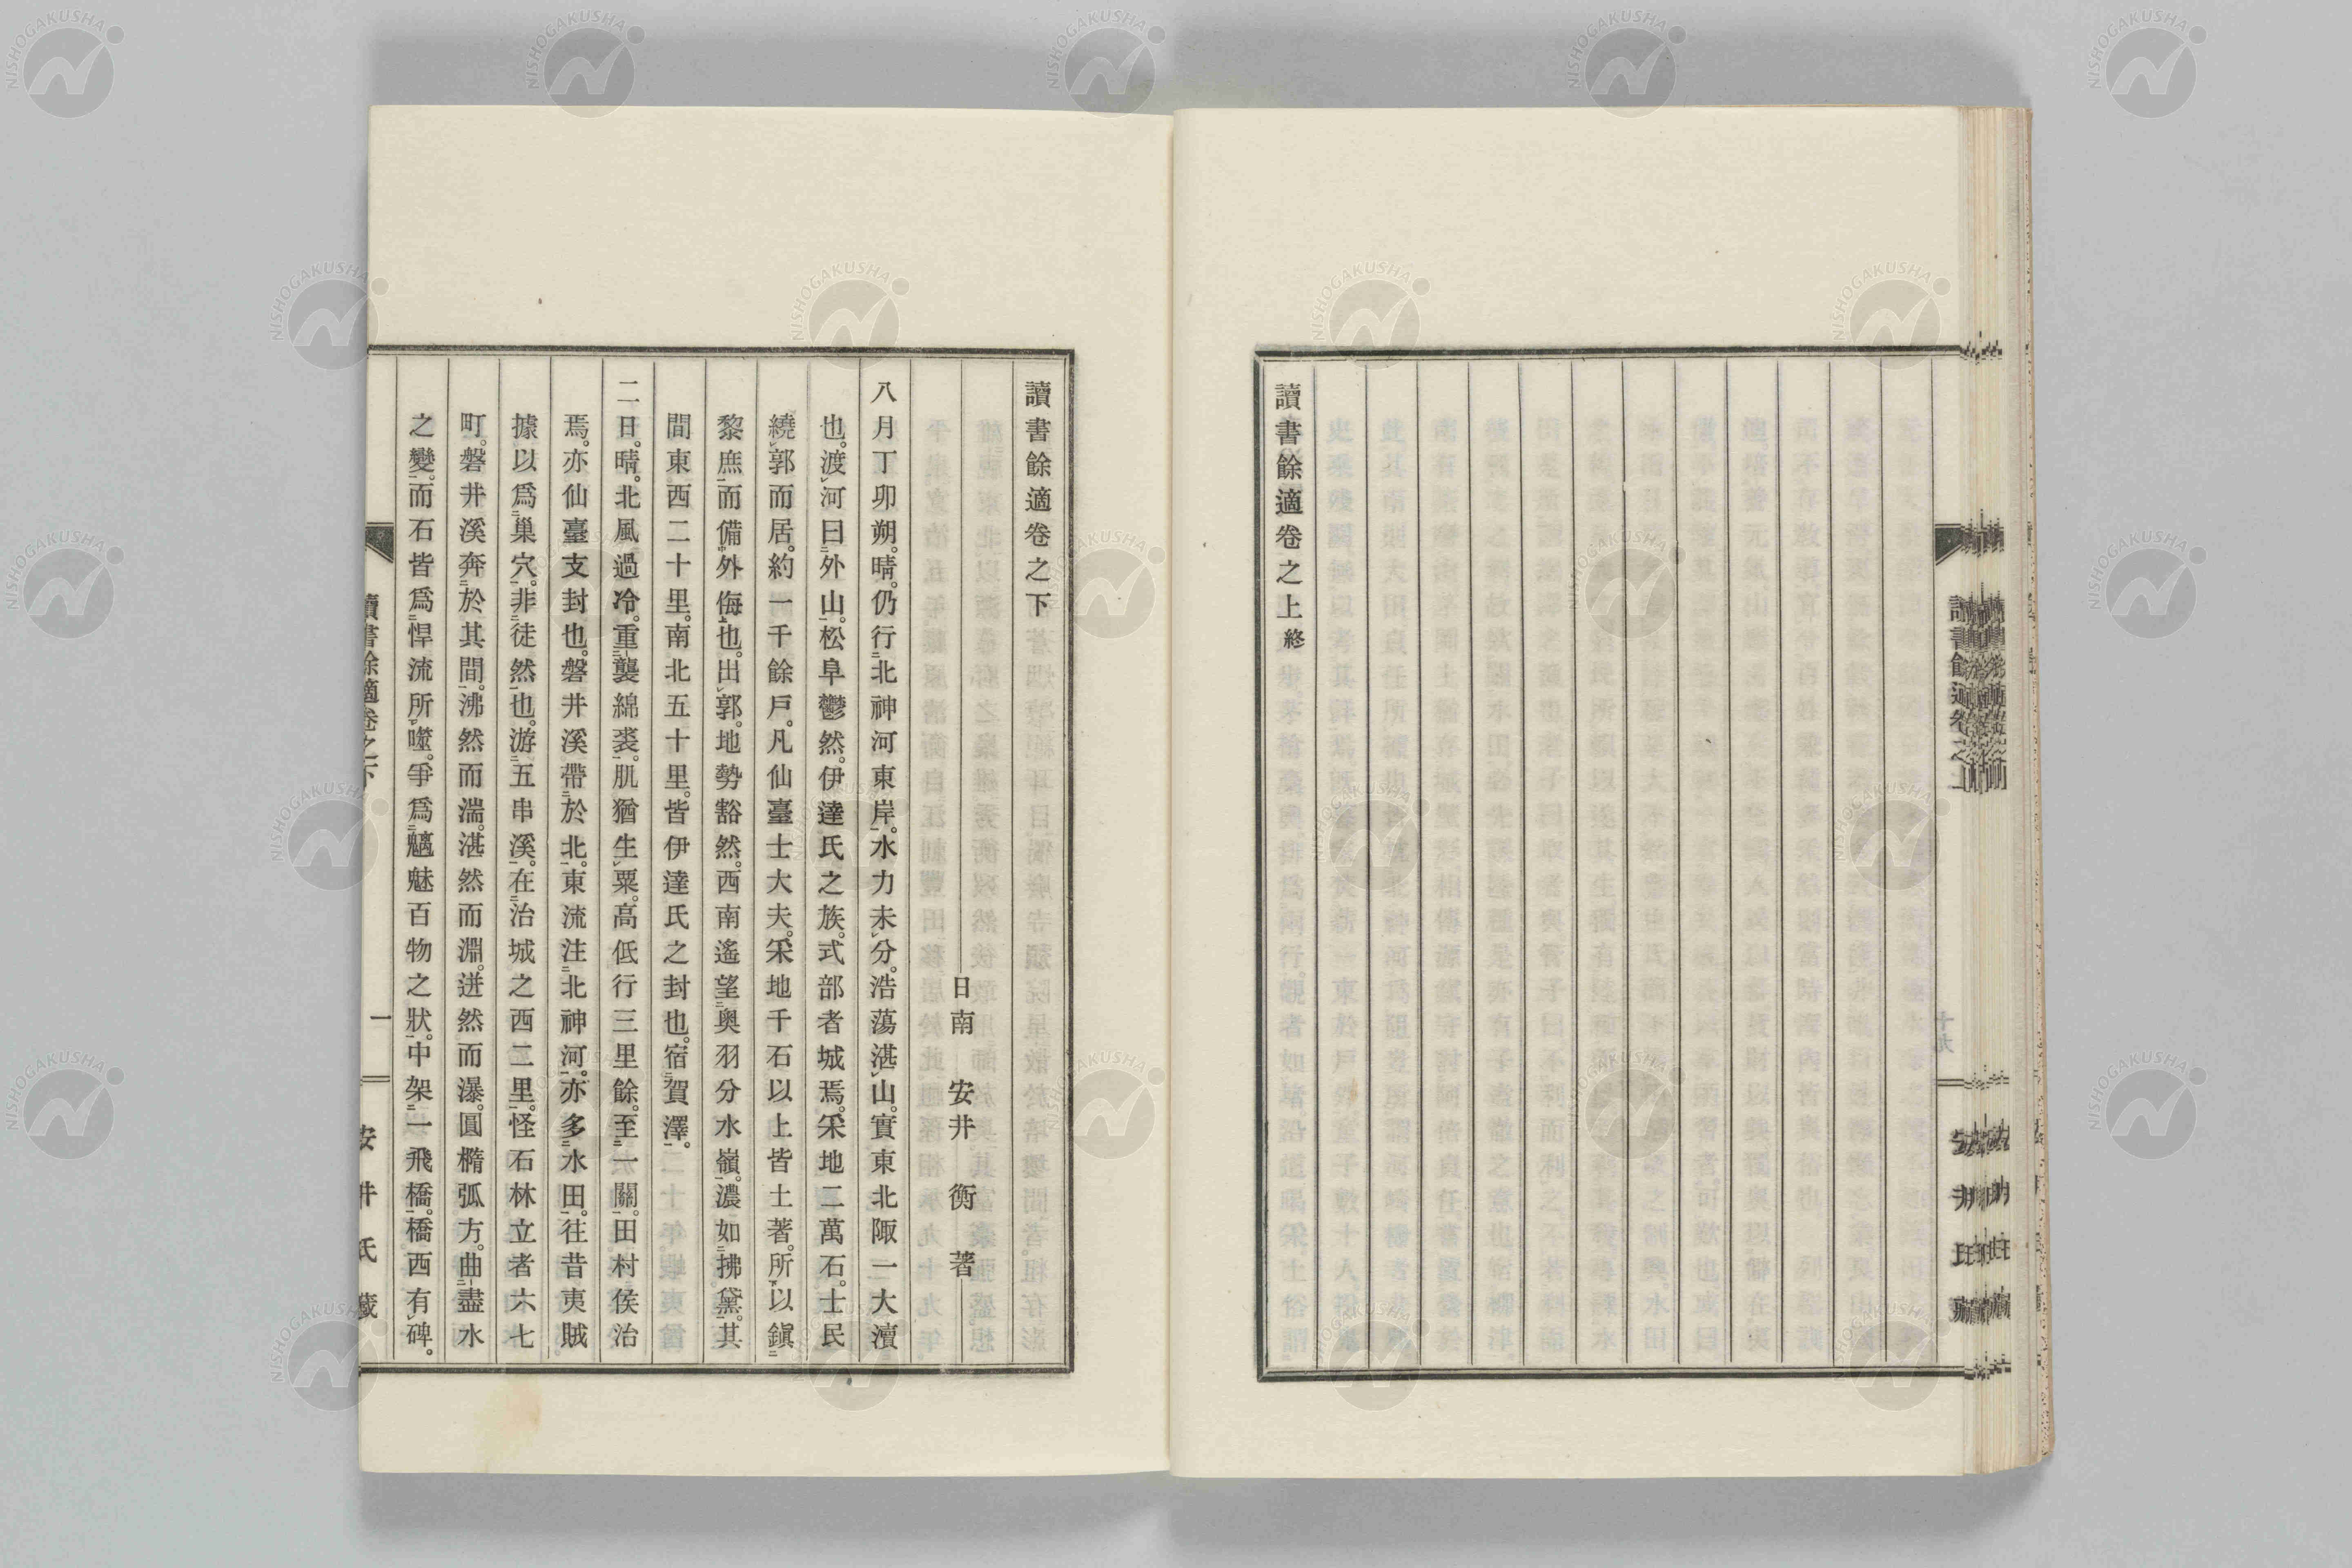 讀書餘適卷之上終
讀書餘適卷之上
安井氏藏
讀書餘適卷之下
日南 安井衡著
八月丁卯朔。晴。仍行北神河東岸。水力未分。浩蕩湛山。實東北陬一大瀆
也。渡河曰外山。松阜鬱然。伊達氏之族。式部者城焉。采地二萬石。士民
繞郭而居。約一千餘戶。凡仙臺士大夫。采地千石以上皆土著。所以鎭
黎庶而備外侮也。出郭。地勢豁然。西南遙望奧羽分水嶺。濃如拂黛。其
間東西二十里。南北五十里。皆伊達氏之封也。宿賀澤。
二日。晴。北風過冷。重襲綿裘。肌猶生粟。高低行三里餘。至一關。田村侯治
焉。亦仙臺支封也。磐井溪帶於北。東流注北神河。亦多水田。往昔夷賊
據以爲巢穴。非徒然也。游五串溪。在治城之西二里。怪石林立者六七
町。磐井溪奔於其間。沸然而湍。湛然而淵。迸然而瀑。圓橢弧方。曲盡水
之變。而石皆爲悍流所噬。爭爲魑魅百物之狀。中架一飛橋。橋西有碑。
讀書餘適卷之下
一
安井氏藏
NISHOGAKUSHA